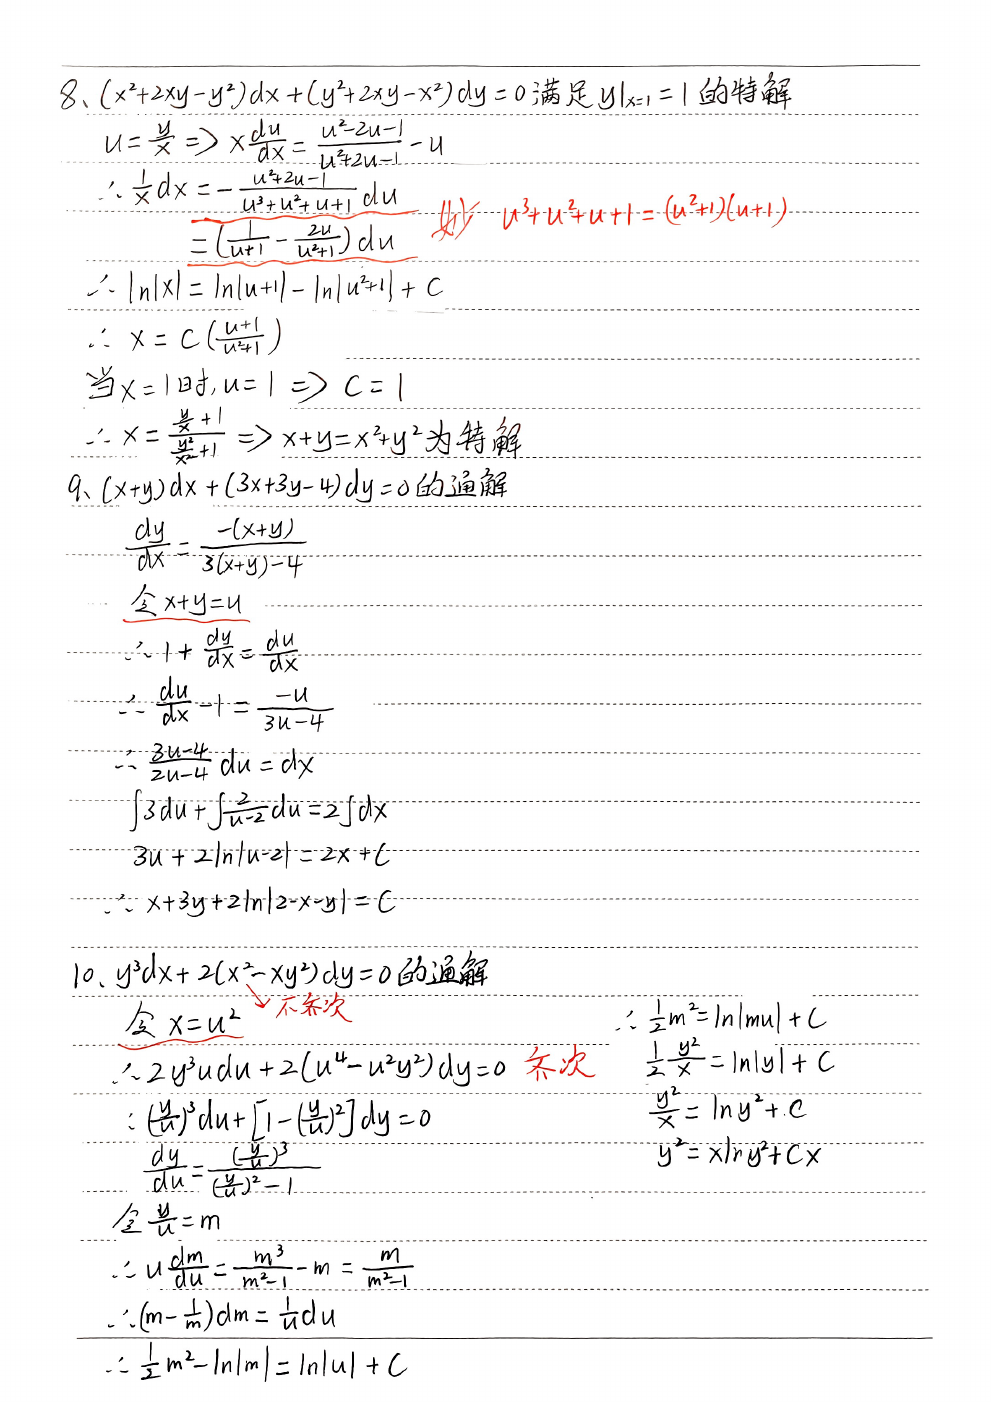 8、(x²+2xy-y²)dx+(y²+2xy-x²)dy=0满足y|ₓ₌₁=1的特解
u=y/x => x du/dx = (u²-2u-1)/(u²+2u-1) - u
∴ 1/x dx = - (u²+2u-1)/(u³+u²+u+1) du
妙 u³+u²+u+1=(u²+1)(u+1)
= (1/(u+1) - 2u/(u²+1)) du
∴ ln|x| = ln|u+1| - ln|u²+1| + C
∴ x = C((u+1)/(u²+1))
当x=1时,u=1 => C=1
∴ x = (y/x+1)/(y²/x²+1) => x+y=x²+y²为特解
9、(x+y)dx+(3x+3y-4)dy=0的通解
dy/dx = -(x+y)/(3(x+y)-4)
令x+y=u
∴ 1+ dy/dx = du/dx
∴ du/dx -1 = -u/(3u-4)
∴ (3u-4)/(2u-4) du = dx
∫3du+∫2/(u-2) du=2∫dx
3u+2ln|u-2|=2x+C
∴ x+3y+2ln|2-x-y|=C
10、y³dx+2(x²-xy²)dy=0的通解
不齐次
令 x=u²
∴ 2y³udu+2(u⁴-u²y²)dy=0 齐次
∴ (y/u)³du+[1-(y/u)²]dy=0
dy/du = (y/u)³/((y/u)²-1)
令 y/u = m
∴ u dm/du = m³/(m²-1) - m = m/(m²-1)
∴ (m-1/m)dm = 1/u du
∴ 1/2 m²-ln|m|=ln|u|+C
∴ 1/2 m²=ln|mu|+C
1/2 y²/x = ln|y|+C
y²/x = lny²+C
y²=xlny²+Cx